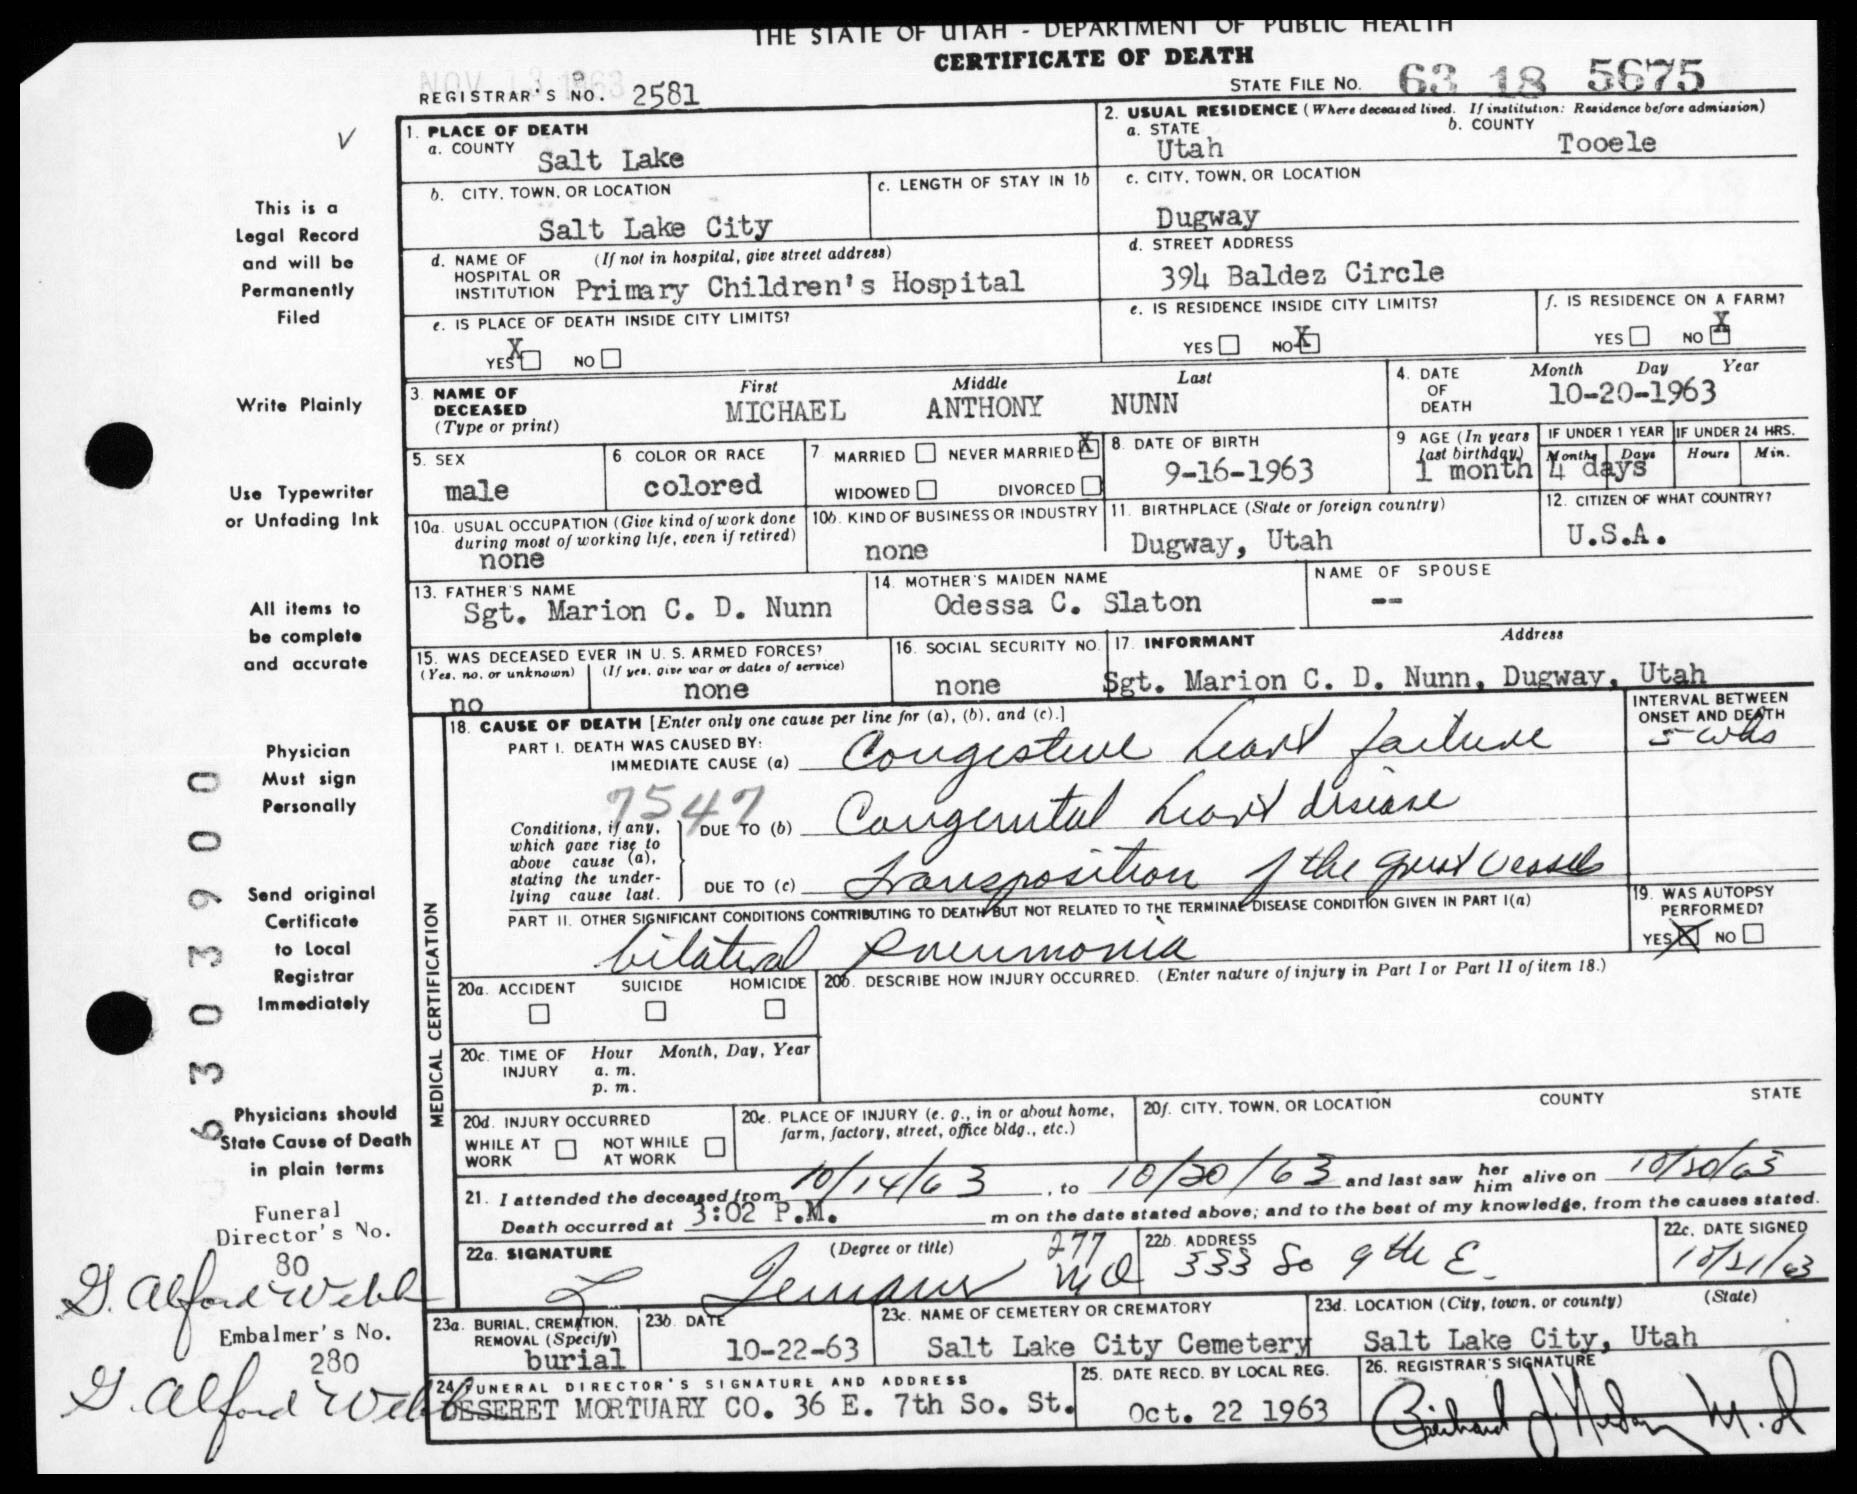 THE STATE OF UTAH - DEPARTMENT OF PUBLIC HEALTH
CERTIFICATE OF DEATH
NOV 13 1963
REGISTRAR'S NO. 2581
STATE FILE NO. 63 18 5675
1. PLACE OF DEATH
a. COUNTY Salt Lake
2. USUAL RESIDENCE (Where deceased lived. If institution: Residence before admission)
a. STATE Utah
b. COUNTY Tooele
b. CITY, TOWN, OR LOCATION
Salt Lake City
c. LENGTH OF STAY IN 1b
c. CITY, TOWN, OR LOCATION
Dugway
d. NAME OF HOSPITAL OR INSTITUTION (If not in hospital, give street address)
Primary Children's Hospital
d. STREET ADDRESS
394 Baldez Circle
e. IS PLACE OF DEATH INSIDE CITY LIMITS?
YES X NO
e. IS RESIDENCE INSIDE CITY LIMITS?
YES NO X
f. IS RESIDENCE ON A FARM?
YES NO X
3. NAME OF DECEASED (Type or print)
First Middle Last
MICHAEL ANTHONY NUNN
4. DATE OF DEATH Month Day Year
10-20-1963
5. SEX
male
6. COLOR OR RACE
colored
7. MARRIED NEVER MARRIED X
WIDOWED DIVORCED
8. DATE OF BIRTH
9-16-1963
9 AGE (In years last birthday)
IF UNDER 1 YEAR IF UNDER 24 HRS.
Months Days Hours Min.
1 month 4 days
10a. USUAL OCCUPATION (Give kind of work done during most of working life, even if retired)
none
10b. KIND OF BUSINESS OR INDUSTRY
none
11. BIRTHPLACE (State or foreign country)
Dugway, Utah
12. CITIZEN OF WHAT COUNTRY?
U.S.A.
13. FATHER'S NAME
Sgt. Marion C. D. Nunn
14. MOTHER'S MAIDEN NAME
Odessa C. Slaton
NAME OF SPOUSE
--
15. WAS DECEASED EVER IN U. S. ARMED FORCES?
(Yes, no, or unknown) (If yes, give war or dates of service)
no none
16. SOCIAL SECURITY NO.
none
17. INFORMANT Address
Sgt. Marion C. D. Nunn, Dugway, Utah
MEDICAL CERTIFICATION
18. CAUSE OF DEATH [Enter only one cause per line for (a), (b), and (c).]
INTERVAL BETWEEN ONSET AND DEATH
PART I. DEATH WAS CAUSED BY:
IMMEDIATE CAUSE (a) Congestive heart failure 5 wks
7547
Conditions, if any, which gave rise to above cause (a), stating the underlying cause last.
DUE TO (b) Congenital heart disease
DUE TO (c) Transposition of the great vessels
PART II. OTHER SIGNIFICANT CONDITIONS CONTRIBUTING TO DEATH BUT NOT RELATED TO THE TERMINAL DISEASE CONDITION GIVEN IN PART I(a)
bilateral pneumonia
19. WAS AUTOPSY PERFORMED?
YES X NO
20a. ACCIDENT SUICIDE HOMICIDE
20b. DESCRIBE HOW INJURY OCCURRED. (Enter nature of injury in Part I or Part II of item 18.)
20c. TIME OF INJURY Hour Month, Day, Year
a. m.
p. m.
20d. INJURY OCCURRED
WHILE AT WORK NOT WHILE AT WORK
20e. PLACE OF INJURY (e. g., in or about home, farm, factory, street, office bldg., etc.)
20f. CITY, TOWN, OR LOCATION COUNTY STATE
21. I attended the deceased from 10/14/63, to 10/20/63 and last saw her him alive on 10/20/63
Death occurred at 3:02 P.M. m on the date stated above; and to the best of my knowledge, from the causes stated.
22a. SIGNATURE (Degree or title)
277
MD
22b. ADDRESS
333 So 9th E.
22c. DATE SIGNED
10/21/63
23a. BURIAL, CREMATION, REMOVAL (Specify)
burial
23b. DATE
10-22-63
23c. NAME OF CEMETERY OR CREMATORY
Salt Lake City Cemetery
23d. LOCATION (City, town, or county) (State)
Salt Lake City, Utah
24. FUNERAL DIRECTOR'S SIGNATURE AND ADDRESS
DESERET MORTUARY CO. 36 E. 7th So. St.
25. DATE RECD. BY LOCAL REG.
Oct. 22 1963
26. REGISTRAR'S SIGNATURE
This is a
Legal Record
and will be
Permanently
Filed
Write Plainly
Use Typewriter
or Unfading Ink
All items to
be complete
and accurate
Physician
Must sign
Personally
Send original
Certificate
to Local
Registrar
Immediately
Physicians should
State Cause of Death
in plain terms
6303900
Funeral
Director's No.
80
G. Alford Webb
Embalmer's No.
280
G. Alford Webb